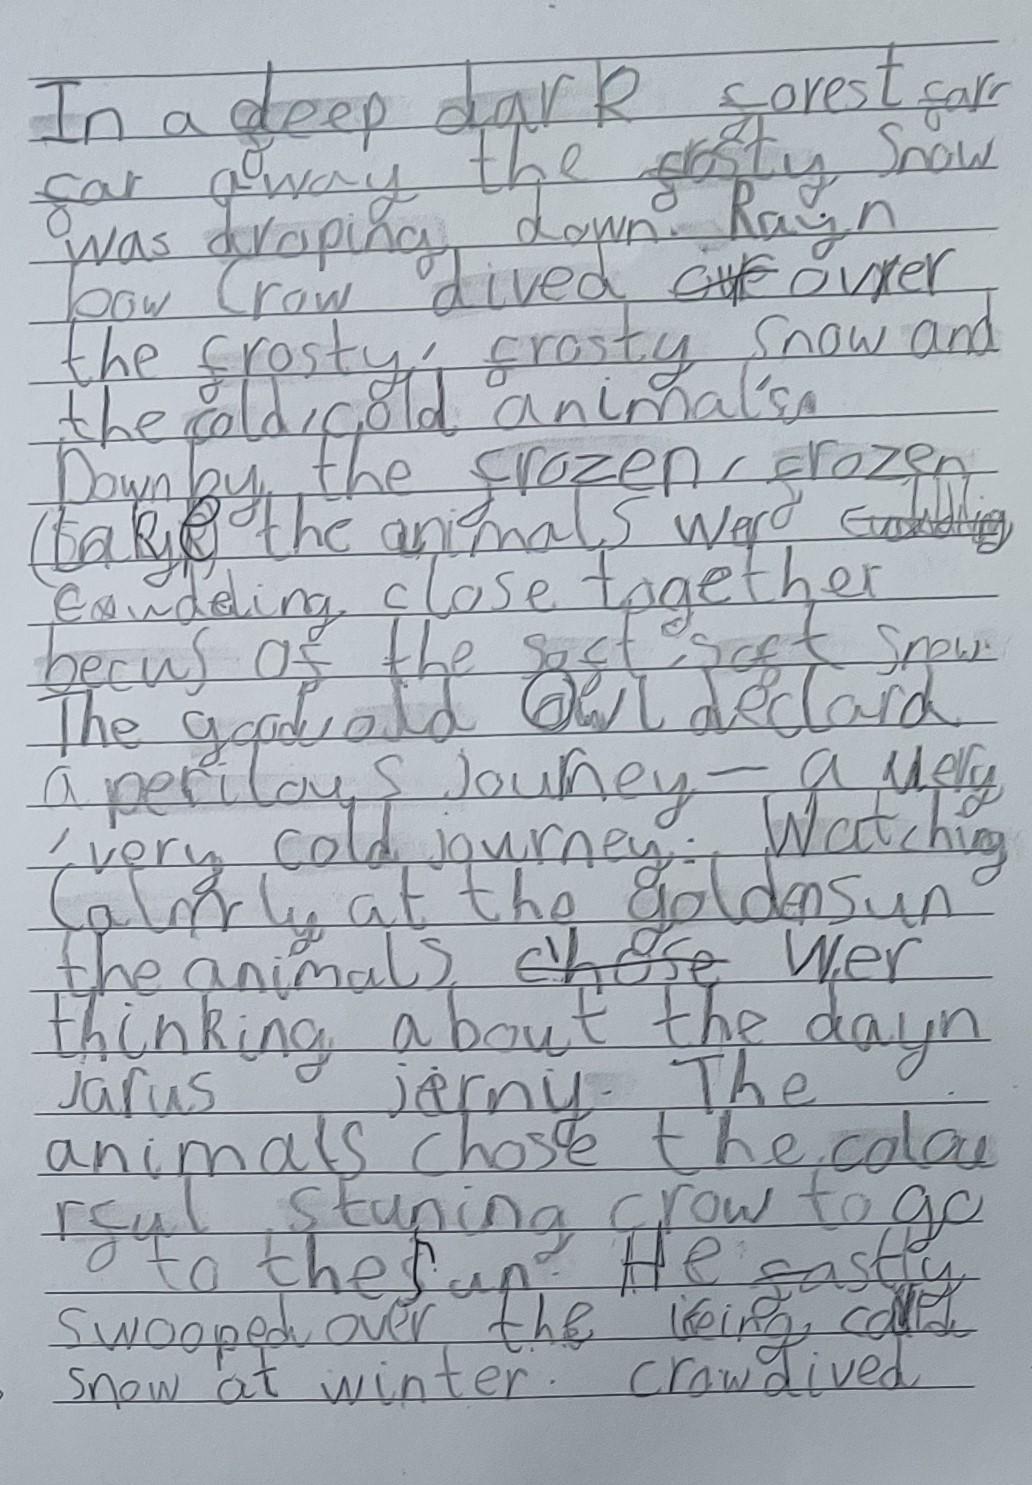 In a deep dark forest farr
far away the frosty Snow
was droping down. Rayn
bow Crow dived over
the frosty, frosty snow and
the cold, cold animal's.
Down by the frozen, frozen
lake the animals werd
caudeling close together
becus of the soft, soft snow.
The good, old Owl declard
a perilous journey — a very
, very cold journey. Watching
Calmly at the golden sun
the animals wer
thinking about the dayn
jarus jerny. The
animals chose the colou
rful stuning crow to go
to the sun. He fastly
swooped over the iceing cold
snow at winter. crow dived